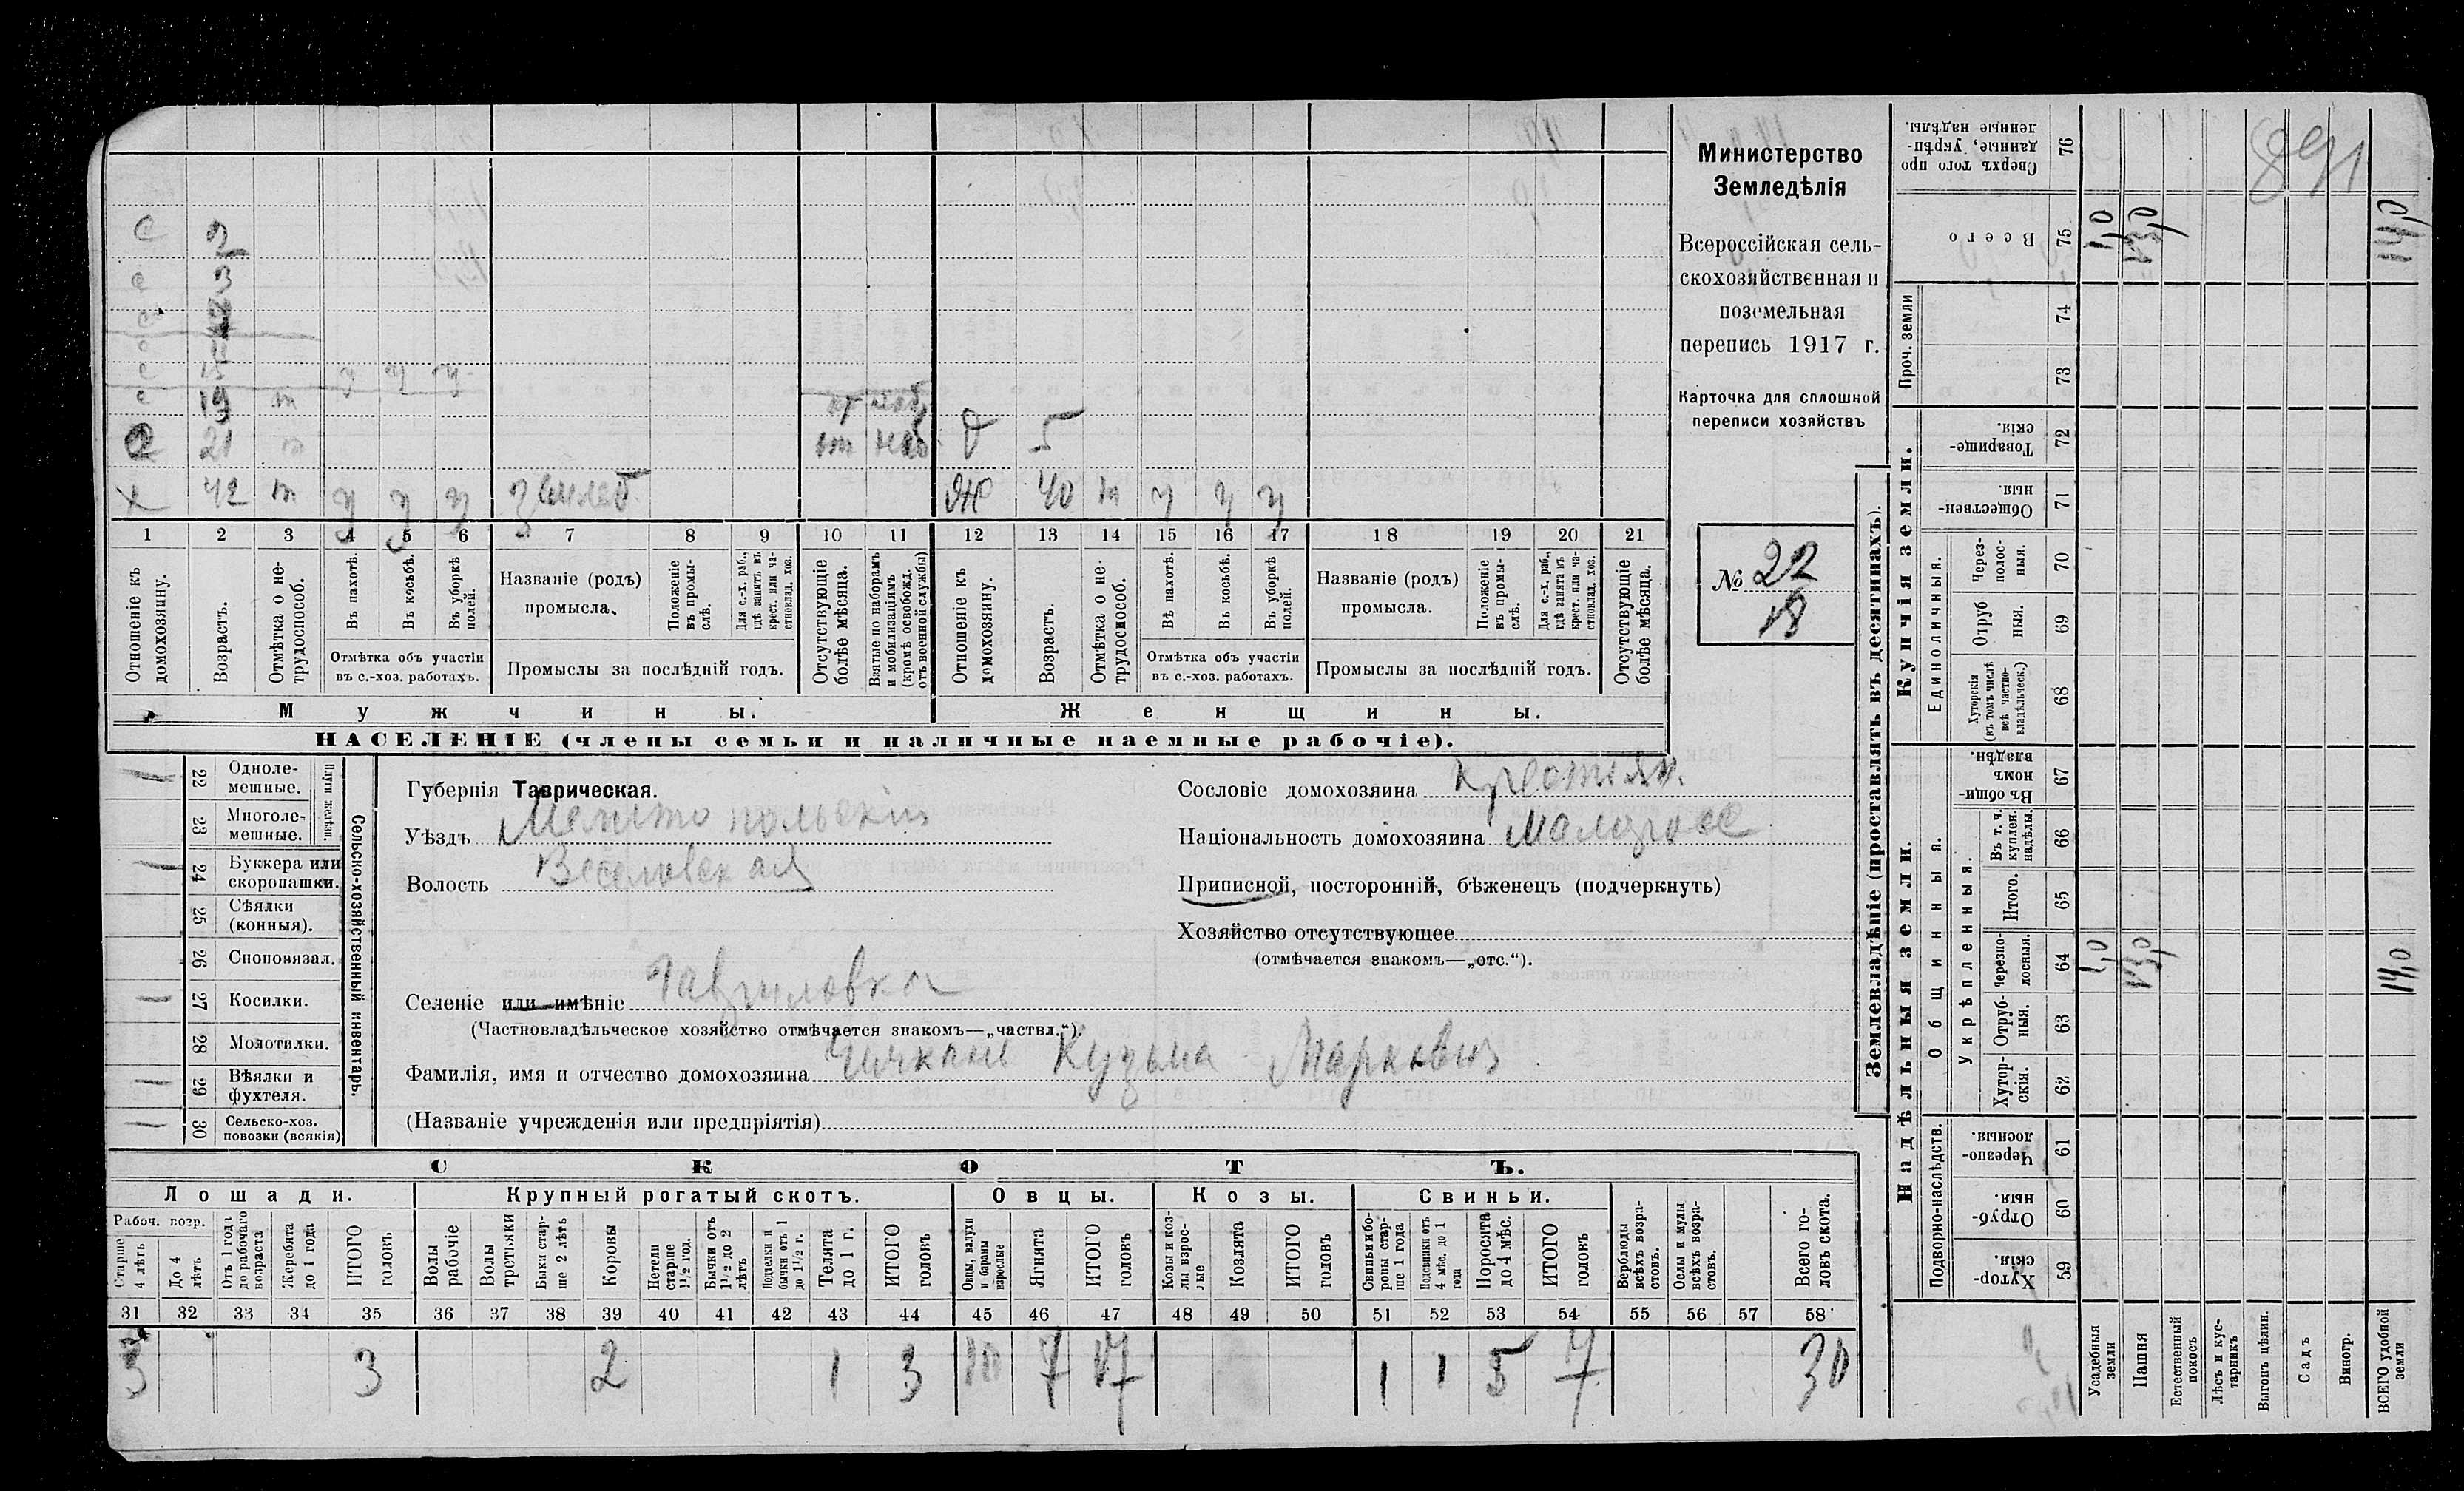 С 2
с 3
с
с
с 15 у у у
с 19 т от моб
С 21 т от моб д 5
х 42 т у у у землед. Ж 40 т у у у
1 2 3 4 5 6 7 8 9 10 11 12 13 14 15 16 17 18 19 20 21
Отношеніе къ домохозяину.
Возрастъ.
Отмѣтка о не-
трудоспособ.
Въ пахотѣ.
Въ косьбѣ.
Въ уборкѣ полей.
Отмѣтка объ участіи
въ с.-хоз. работахъ.
Названіе (родъ)
промысла.
Положеніе
въ промы-
слѣ.
Для с.-х. раб.,
гдѣ занятъ въ
крест. или ча-
стновлад. хоз.
Промыслы за послѣдній годъ.
Отсутствующіе
болѣе мѣсяца.
Взятые по наборамъ
и мобилизаціямъ
(кромѣ освобожд.
отъ военной службы)
Отношеніе къ
домохозяину.
Возрастъ.
Отмѣтка о не-
трудоспособ.
Въ пахотѣ.
Въ косьбѣ.
Въ уборкѣ
полей.
Отмѣтка объ участіи
въ с.-хоз. работахъ.
Названіе (родъ)
промысла.
Положеніе
въ промы-
слѣ.
Для с.-х. раб.,
гдѣ занята въ
крест. или ча-
стновлад. хоз.
Промыслы за послѣдній годъ.
Отсутствующіе
болѣе мѣсяца.
Мужчины.
Женщины.
НАСЕЛЕНІЕ (члены семьи и наличные наемные рабочіе).
Министерство
Земледѣлія
Всероссійская сель-
скохозяйственная и
поземельная
перепись 1917 г.
Карточка для сплошной
переписи хозяйствъ
№ 22
18
Плуги желѣзн.
1 22 Одноле-
мешные.
23 Многоле-
мешные.
1 24 Буккера или
скоропашки.
25 Сѣялки
(конныя).
26 Сноповязал.
1 27 Косилки.
28 Молотилки.
1 29 Вѣялки и
фухтеля.
1 30 Сельско-хоз.
повозки (всякія)
Сельско-хозяйственный инвентарь.
Губернія Таврическая.
Уѣздъ Мелитопольскій
Волость Веселовская
Селеніе или имѣніе Гавриловка
(Частновладѣльческое хозяйство отмѣчается знакомъ—„частвл.“).
Фамилія, имя и отчество домохозяина Чичкань Кузьма Марковиз
(Названіе учрежденія или предпріятія)
Сословіе домохозяина крестьян.
Національность домохозяина Малоросс
Приписной, посторонній, бѣженецъ (подчеркнуть)
Хозяйство отсутствующее
(отмѣчается знакомъ—„отс.“).
СКОТЪ.
Лошади. Крупный рогатый скотъ. Овцы. Козы. Свиньи.
Рабоч. возр.
Старше
4 лѣтъ
До 4
лѣтъ
Отъ 1 года
до рабочаго
возраста
Жеребята
до 1 года
ИТОГО
головъ
Волы
рабочіе
Волы
третьяки
Быки стар-
ше 2 лѣтъ
Коровы
Нетели
старше
1½ год.
Бычки отъ
1½ до 2
лѣтъ
Подтелки и
бычки отъ 1
до 1½ г.
Телята
до 1 г.
ИТОГО
головъ
Овцы, валухи
и бараны
взрослые
Ягнята
ИТОГО
головъ
Козы и коз-
лы взрос-
лые
Козлята
ИТОГО
головъ
Свиньи и бо-
ровы стар-
ше 1 года
Подсвинки отъ
4 мѣс. до 1
года
Поросята
до 4 мѣс.
ИТОГО
головъ
Верблюды
всѣхъ возра-
стовъ.
Ослы и мулы
всѣхъ возра-
стовъ.
Всего го-
ловъ скота.
31 32 33 34 35 36 37 38 39 40 41 42 43 44 45 46 47 48 49 50 51 52 53 54 55 56 57 58
3 3 2 1 3 10 7 17 1 1 5 7 30
Землевладѣніе (проставлять въ десятинахъ).
Надѣльныя земли.
Купчія земли.
Проч. земли
Подворно-наслѣдств.
Общинныя.
Укрѣпленныя.
Единоличныя.
Хутор-
скія. 59
Отруб-
ныя. 60
Черезпо-
лосныя. 61
Хутор-
скія. 62
Отруб-
ныя. 63
Черезпо-
лосныя. 64 1,0 13,0 14,0
Итого. 65
Въ т. ч.
куплен.
надѣлы. 66
Въ общи-
номъ
владѣн. 67
Хуторскія
(въ томъ числѣ
всѣ частно-
владѣльческ.) 68
Отруб
ныя. 69
Через-
полос-
ныя. 70
Обществен-
ныя. 71
Товарище-
скія. 72
73
74
Всего 75 1,0 13,0 14,0
Сверхъ того про
данные, укрѣп-
ленные надѣлы. 76
891
Усадебныя
земли
Пашня
Естественный
покосъ
Лѣсъ и кус-
тарникъ
Выгонъ цѣлин.
Садъ
Виногр.
ВСЕГО удобной
земли